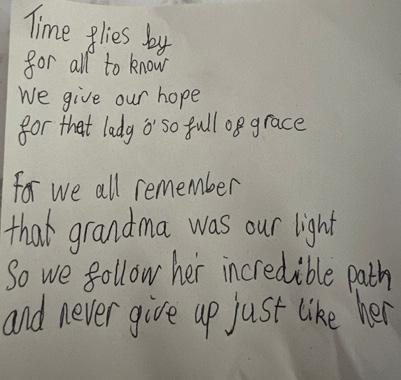 Time flies by
for all to know
We give our hope
for that lady o' so full of grace
For we all remember
that grandma was our light
So we follow her incredible path
and never give up just like her